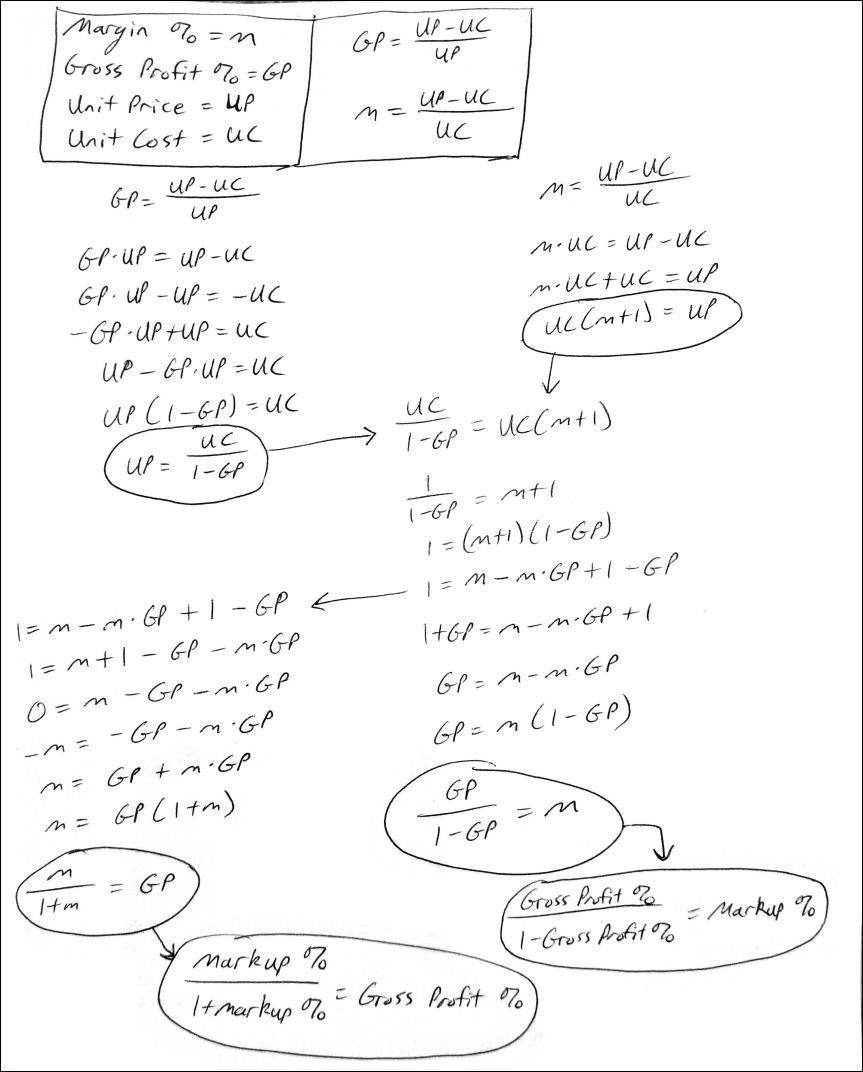 Margin % = m
Gross Profit % = GP
Unit Price = UP
Unit Cost = UC
GP = (UP-UC)/UP
m = (UP-UC)/UC
GP = (UP-UC)/UP
GP·UP = UP-UC
GP·UP-UP = -UC
-GP·UP+UP = UC
UP-GP·UP = UC
UP(1-GP) = UC
UP = UC/(1-GP)
m = (UP-UC)/UC
m·UC = UP-UC
m·UC+UC = UP
UC(m+1) = UP
UC/(1-GP) = UC(m+1)
1/(1-GP) = m+1
1 = (m+1)(1-GP)
1 = m-m·GP+1-GP
1+GP = m-m·GP+1
GP = m-m·GP
GP = m(1-GP)
GP/(1-GP) = m
Gross Profit %/(1-Gross Profit %) = Markup %
1 = m-m·GP+1-GP
1 = m+1-GP-m·GP
0 = m-GP-m·GP
-m = -GP-m·GP
m = GP+m·GP
m = GP(1+m)
m/(1+m) = GP
Markup %/(1+markup %) = Gross Profit %